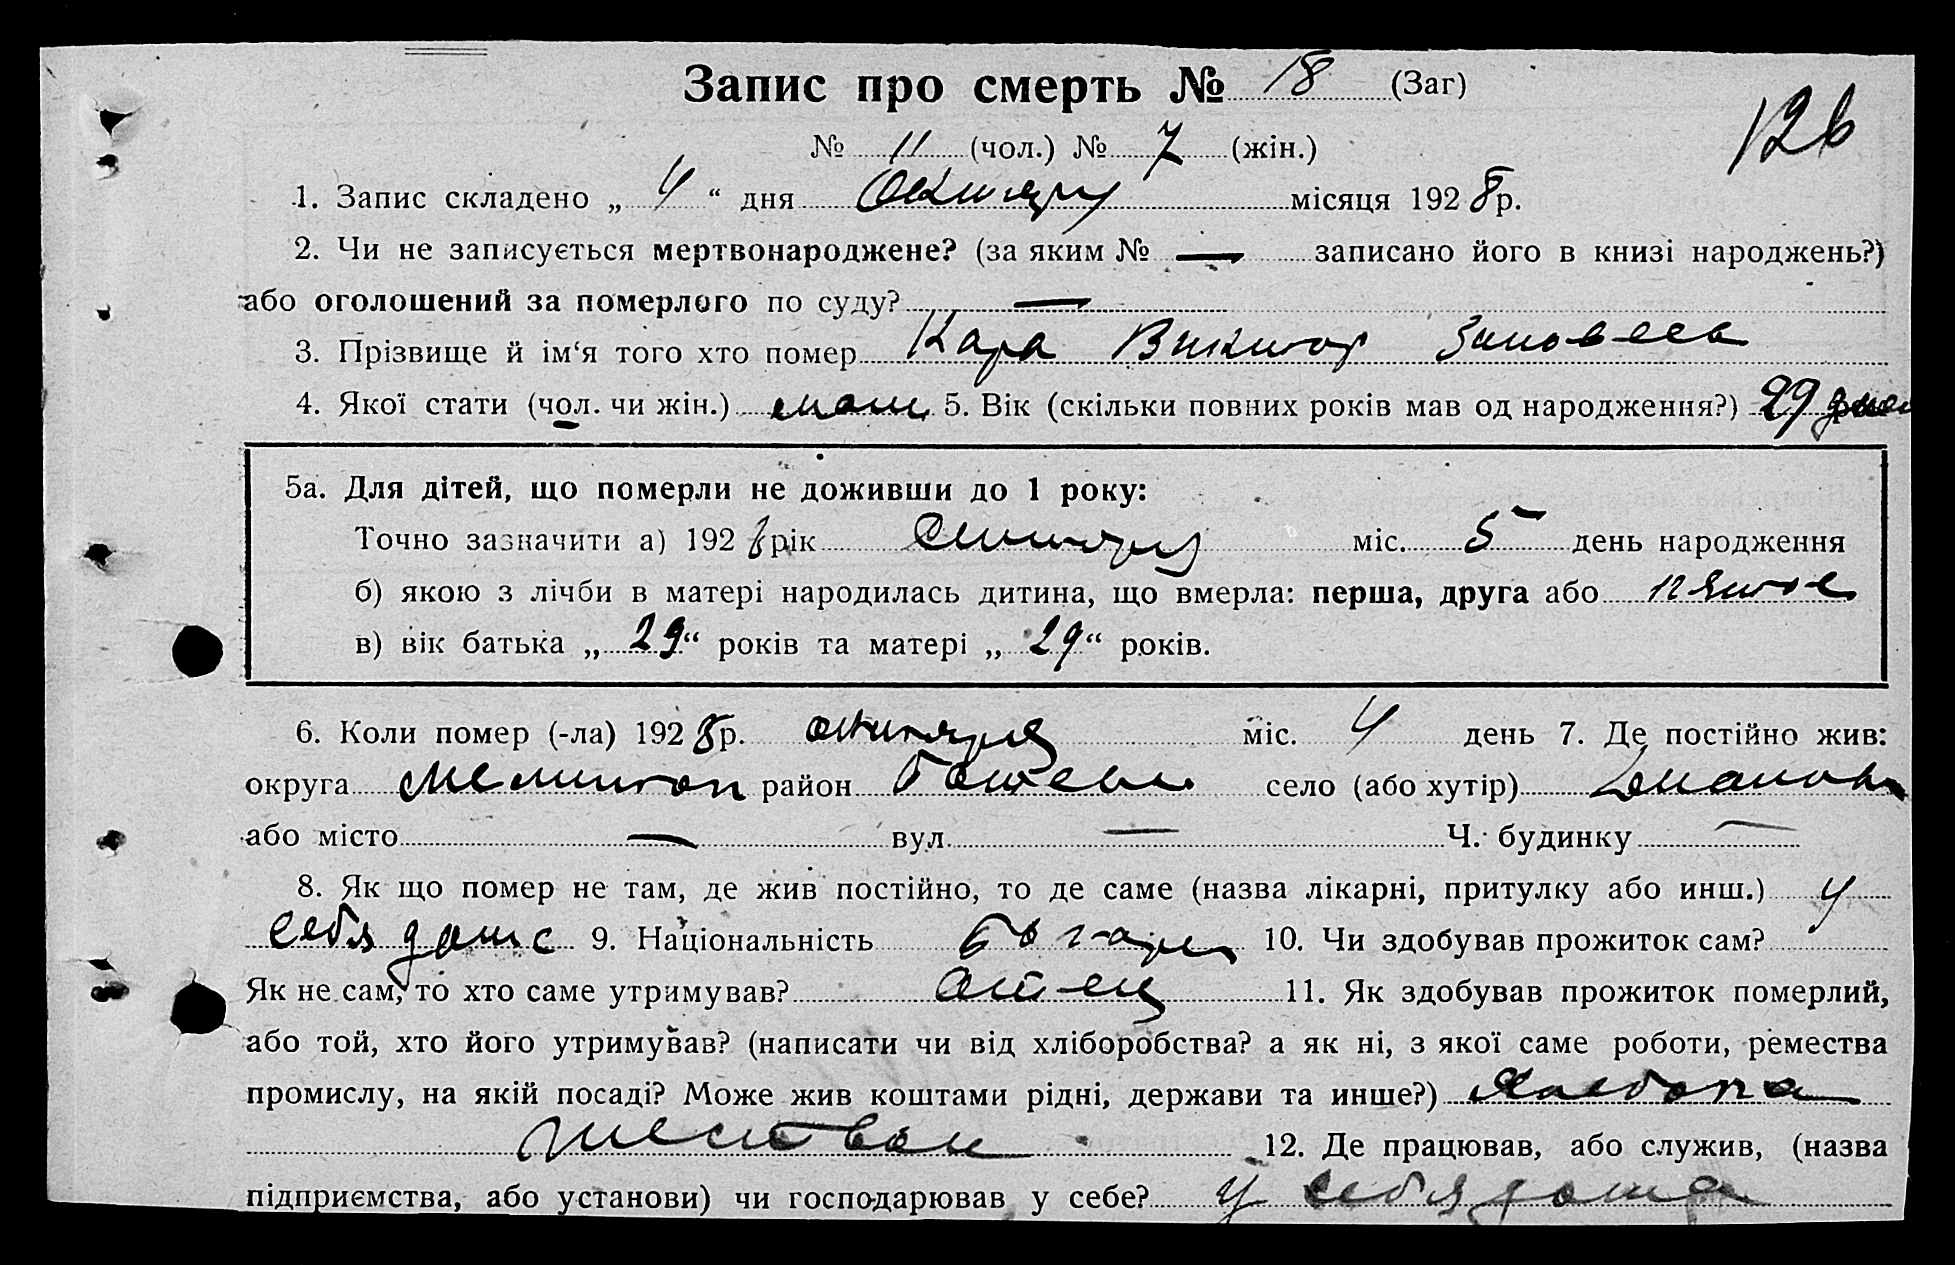 Запис про смерть № 18 (Заг)
126
№ 11 (чол.) № 7 (жін.)
1. Запис складено „ 4 “ дня Октября місяця 1928 р.
2. Чи не записується мертвонароджене? (за яким № — записано його в книзі народжень?)
або оголошений за померлого по суду? —
3. Прізвище й ім‘я того хто помер Кара Виктор Зиновеев
4. Якої стати (чол. чи жін.) 5. Вік (скільки повних років мав од народження?) 29 дней
5а. Для дітей, що померли не доживши до 1 року:
Точно зазначити а) 1928 рік Сентября міс. 5 день народження
б) якою з лічби в матері народилась дитина, що вмерла: перша, друга або пятое
в) вік батька „ 29 “ років та матері „ 29 “ років.
6. Коли помер (-ла) 1928 р. октября міс. 4 день 7. Де постійно жив:
округа Мелитоп район село (або хутір)
або місто — вул. — Ч. будинку —
8. Як що помер не там, де жив постійно, то де саме (назва лікарні, притулку або инш.) у
себя доме 9. Національність болгарин 10. Чи здобував прожиток сам?
Як не сам, то хто саме утримував? отец 11. Як здобував прожиток померлий,
або той, хто його утримував? (написати чи від хліборобства? а як ні, з якої саме роботи, ремества
промислу, на якій посаді? Може жив коштами рідні, держави та инше?) Хлебопа
шеством 12. Де працював, або служив, (назва
підприємства, або установи) чи господарював у себе? У себя дома